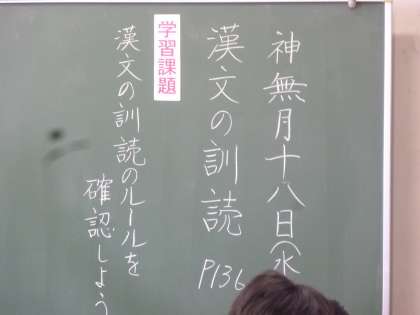 神無月十八日(水
漢文の訓読
P136
学習課題
漢文の訓読のルールを
確認しよう